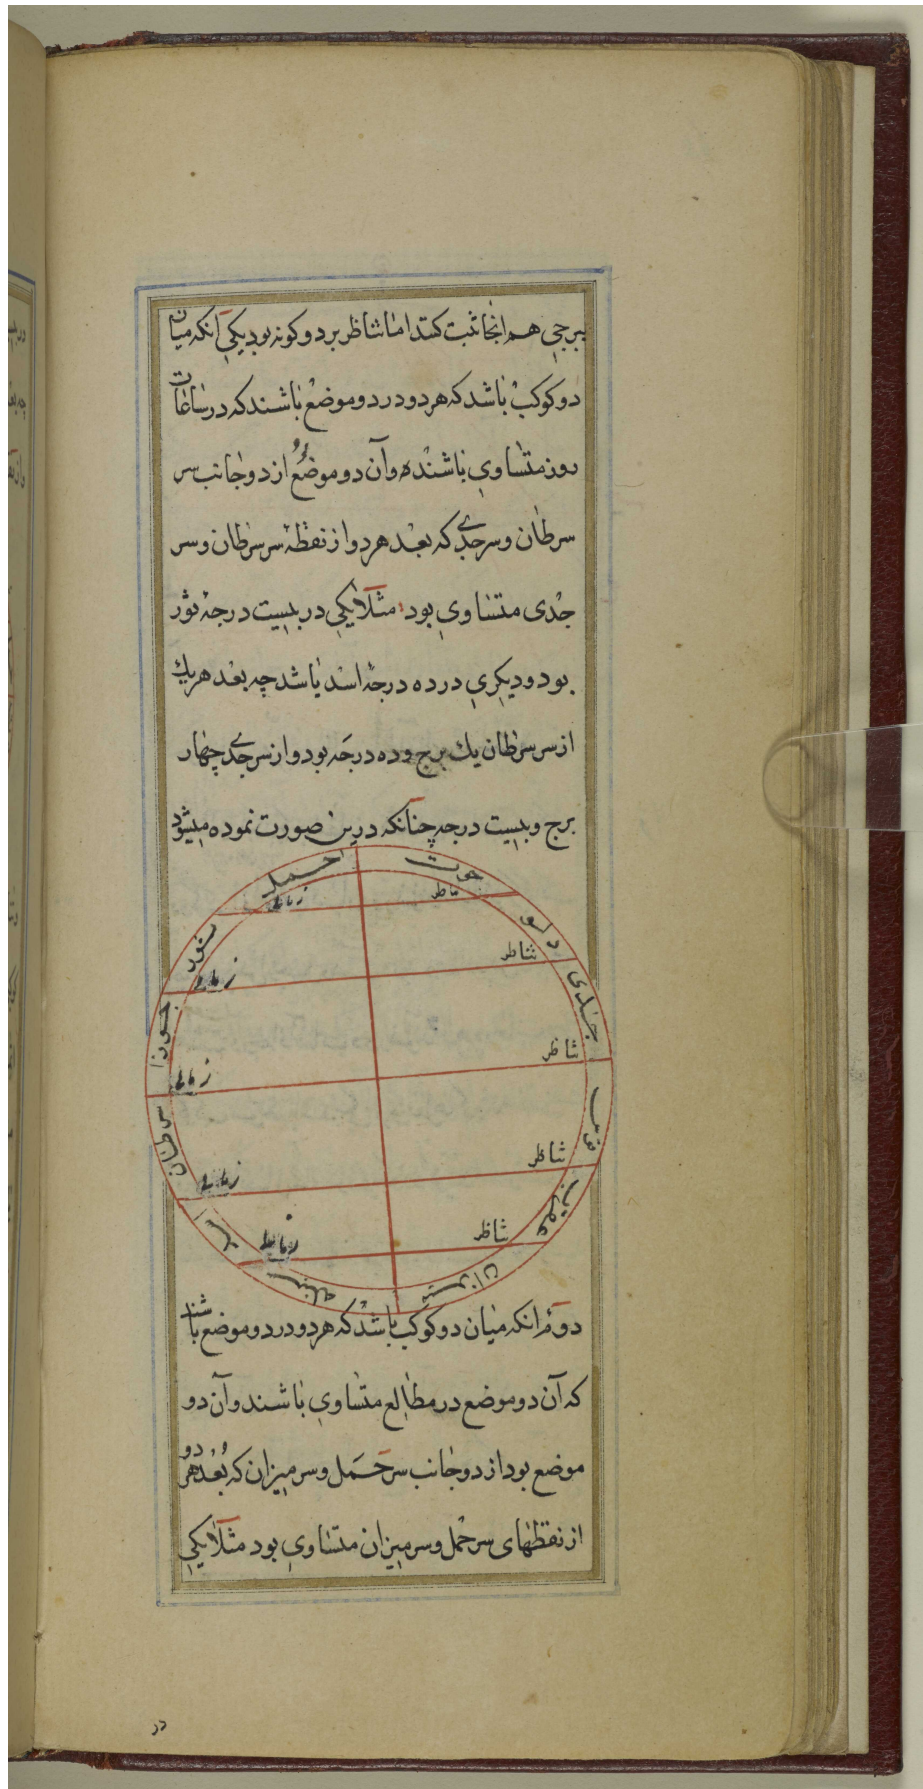 ببرجی هم انجا ثبت کنند اما تناظر بر دو کونه بود یکی آنکه میان
دو کوکب باشد که هر دو در دو موضع باشند که در ساعات
روز متساوی باشند و آن دو موضع از دو جانب سر
سرطان و سر جدی که بعد هر دو از نقطهٔ سر سرطان و سر
جدی متساوی بود مثلا یکی در بیست درجهٔ ثور
بود و دیکری در ده درجهٔ اسد باشد چه بعد هر یك
از سر سرطان یك برج و ده درجه بود و از سر جدی چهار
برج و بیست درجه چنانکه درین صورت نموده میشود
حمل
حوت
زمانی
تناظر
ثور
دلو
زمانی
تناظر
جوزا
جدی
زمانی
تناظر
سرطان
قوس
زمانی
تناظر
اسد
عقرب
زمانی
تناظر
سنبله
میزان
دوم انکه میان دو کوکب باشد که هر دو در دو موضع باشند
که آن دو موضع در مطالع متساوی باشند و آن دو
موضع بود از دو جانب سر حمل و سر میزان که بُعد هر دو
از نقطهای سر حمل و سر میزان متساوی بود مثلا یکی
در